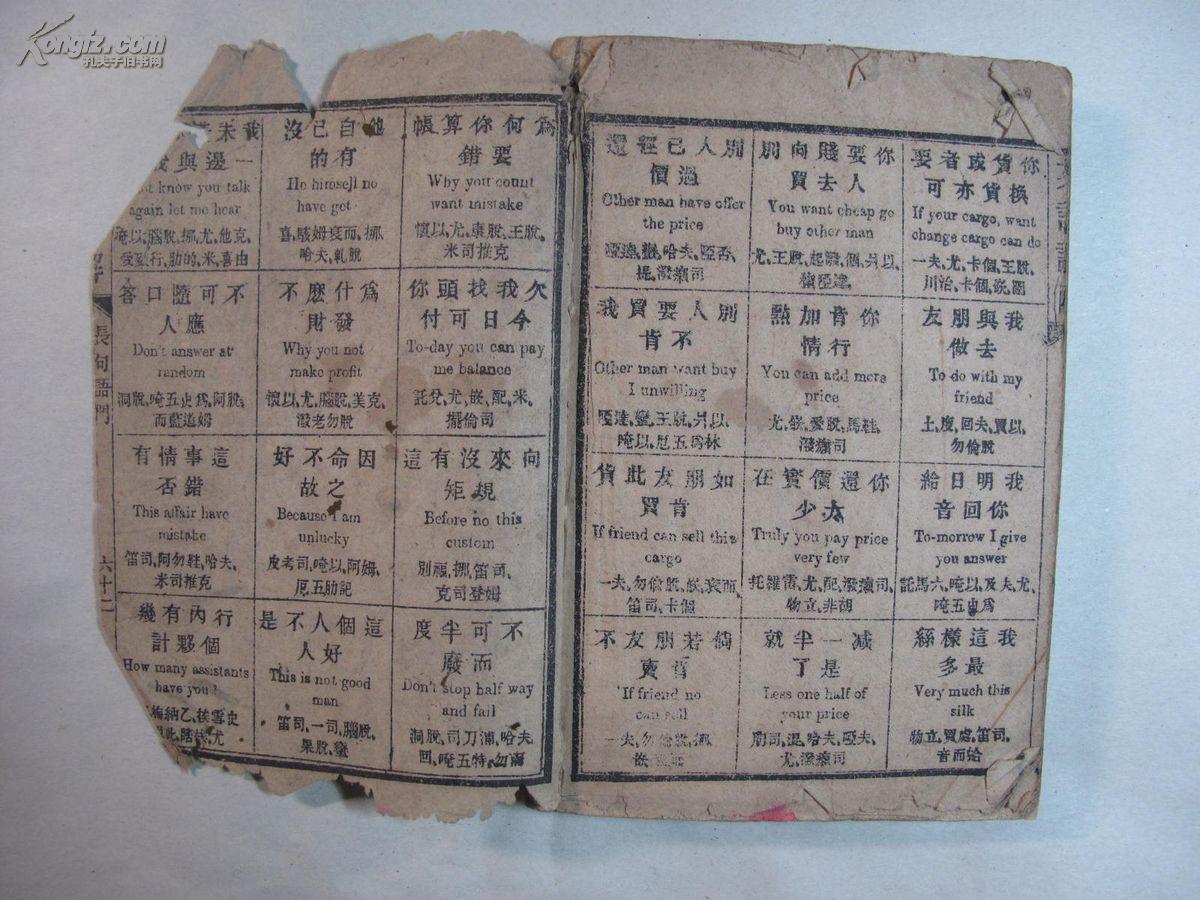 Kongfz.com
孔夫子旧书网
你貨或者要
換貨亦可
If your cargo, want
change cargo can do
一夫,尤,卡個,王脫,
川治,卡個,嵌,
你要賤向別
人去買
You want cheap go
buy other man
尤,王脫,起潑,個,
別人已經還
過價
Other man have offer
the price
啞達,蠻,哈夫,啞否,
提,潑癩司
我與朋友
去做
To do with my
friend
土,度,回夫,買以,
勿倫脫
你肯加點
行情
You can add more
price
尤,嵌,愛脫,馬鞋,
潑癩司
別人要買我
不肯
Other man want buy
I unwilling
啞達,蠻,王脫,
唵以,厄五為林
我明日給
你回音
To-morrow I give
you answer
託馬六,唵以,及夫,尤,
唵五史為
你還價實在
太少
Truly you pay price
very few
托雖雷,尤,配,潑癩司,
物立,非胡
如朋友此貨
肯買
If friend can sell this
cargo
一夫,勿倫脫,嵌,
笛司,卡個
我這樣絲
最多
Very much this
silk
物立,買處,笛司,
音而給
减一半就
是了
Less one half of
your price
尤,潑癩司
倘若朋友不
肯賣
If friend no
can sell
一夫,勿倫脫,挪,
嵌
為何你算帳
要錯
Why you count
want mistake
懷以,尤,康脫,王脫,
米司推克
他自己沒
有的
He himself no
have got
喜,駭姆衰而,挪,
哈夫,軋脫
我未
一邊與
know you talk
again let me hear
唵以,腦脫,挪,尤,他克,
行,肋的,米,喜由
欠我找頭你
今日可付
To-day you can pay
me balance
託兌,尤,嵌,配,米,
擺倫司
為什麽不
發財
Why you not
make profit
懷以,尤,腦脫,美克,
潑老勿脫
不可隨口答
應人
Don't answer at
random
洞脫,唵五史為,阿脫,
而藍道姆
向來沒有這
規矩
Before no this
custom
別福,挪,笛司,
克司登姆
因命不好
之故
Because I am
unlucky
皮考司,唵以,阿姆,
厄五肋記
這事情有
錯否
This affair have
mistake
笛司,阿勿鞋,哈夫,
米司推克
不可半度
而廢
Don't stop half way
and fail
洞脫,司刀浦,哈夫,
回,唵五特,勿爾
這個人不是
好人
This is not good
man
笛司,一司,腦脫,
果脫,蠻
行內有幾
個夥計
How many assistants
have you
長句語門
六十二